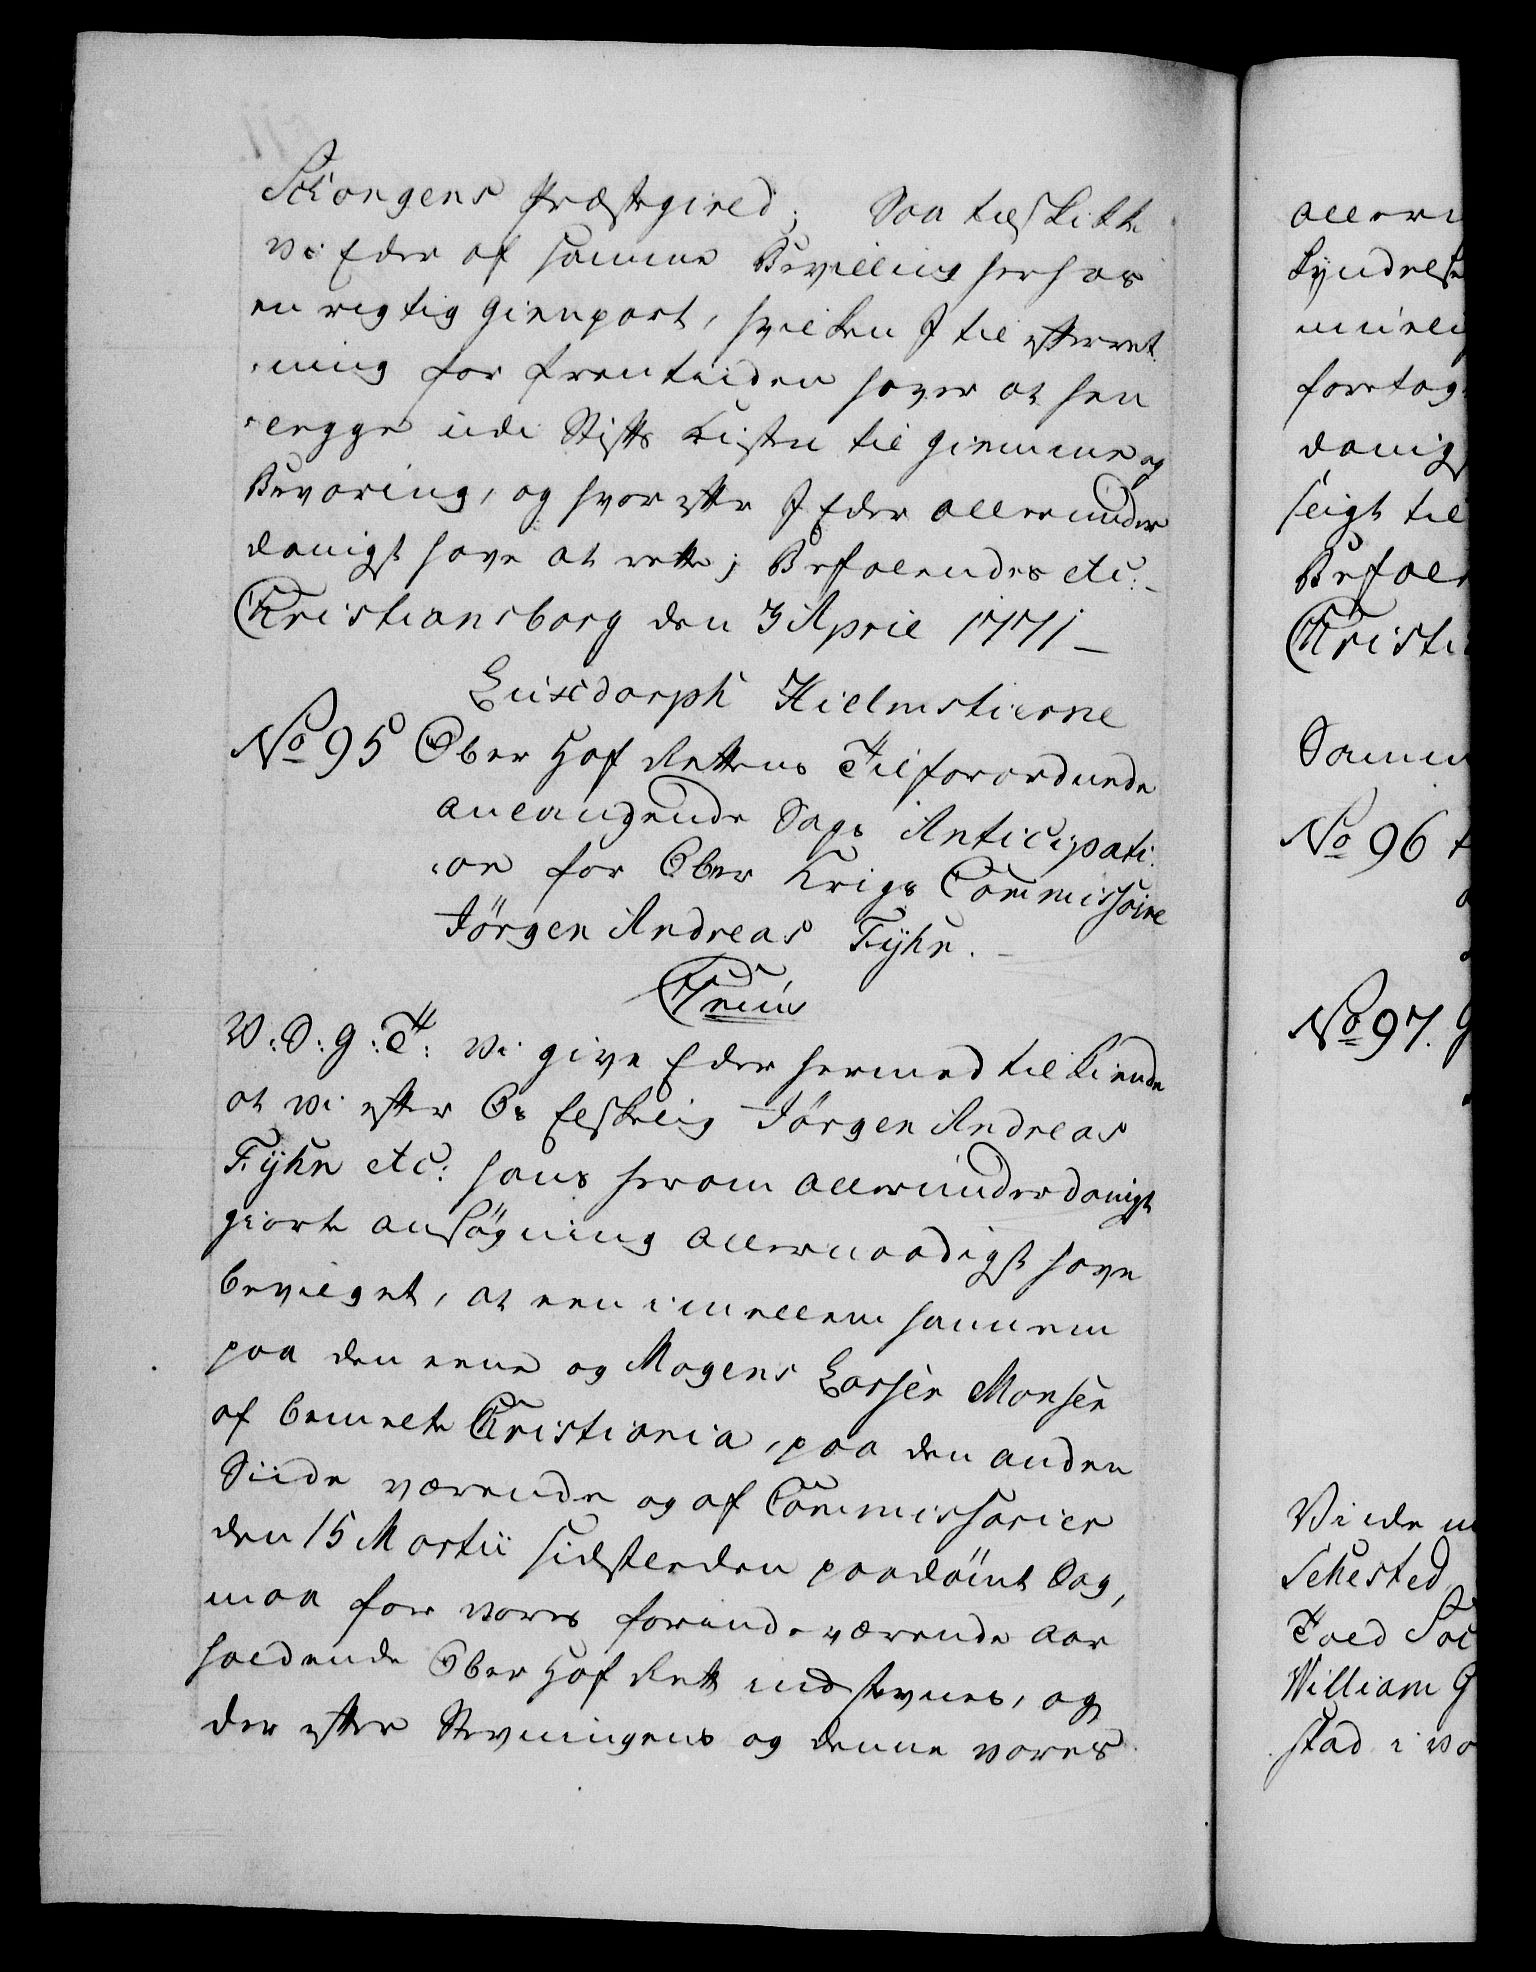 Skiongens Præstegield; Saa tilskikke
Vi Eder af samme Bevilling herhos
en rigtig Gienpart, hvilken I til efterret
ning for fremtiiden haver at hen
legge udi Stifts Kisten til Giemme og
Bevaring, og hvorefter I Eder allerunder
danigst have at rette; Befalendes etc:
Christiansborg den 3 April 1771
Luxdorph Hielmstierne
No 95 Ober Hof Rettens Tilforordnede
anlangende Sags Anticipati
on for Ober Krigs Commissaire
Jörgen Andreas Fyhn.
V: S: G: T: Vi give Eder hermed tilkiende
at vi efter Os Elskelig Jörgen Andreas
Fyhn etc: hans herom allerunderdanigst
giorte ansögning allernaadigst have
bevilget, at een imellem hannem
paa den eene og Mogens Larsen Monsen
af bemelte Christiania, paa den anden
Siide værende og af Commissarier
den 15 Martii sidstleden paadömt Sag,
maa for vores forinde værende Aar
holdende Ober Hof Rett indstevnes, og
der efter Stevningens og denne vores
alleru
Kyndelse
mueli
foretag
danigs
seigt til
Befale
Christi
Samm
No 96
No 97. G
Viide
Sehested
Toed Soe
William G
stad i vo